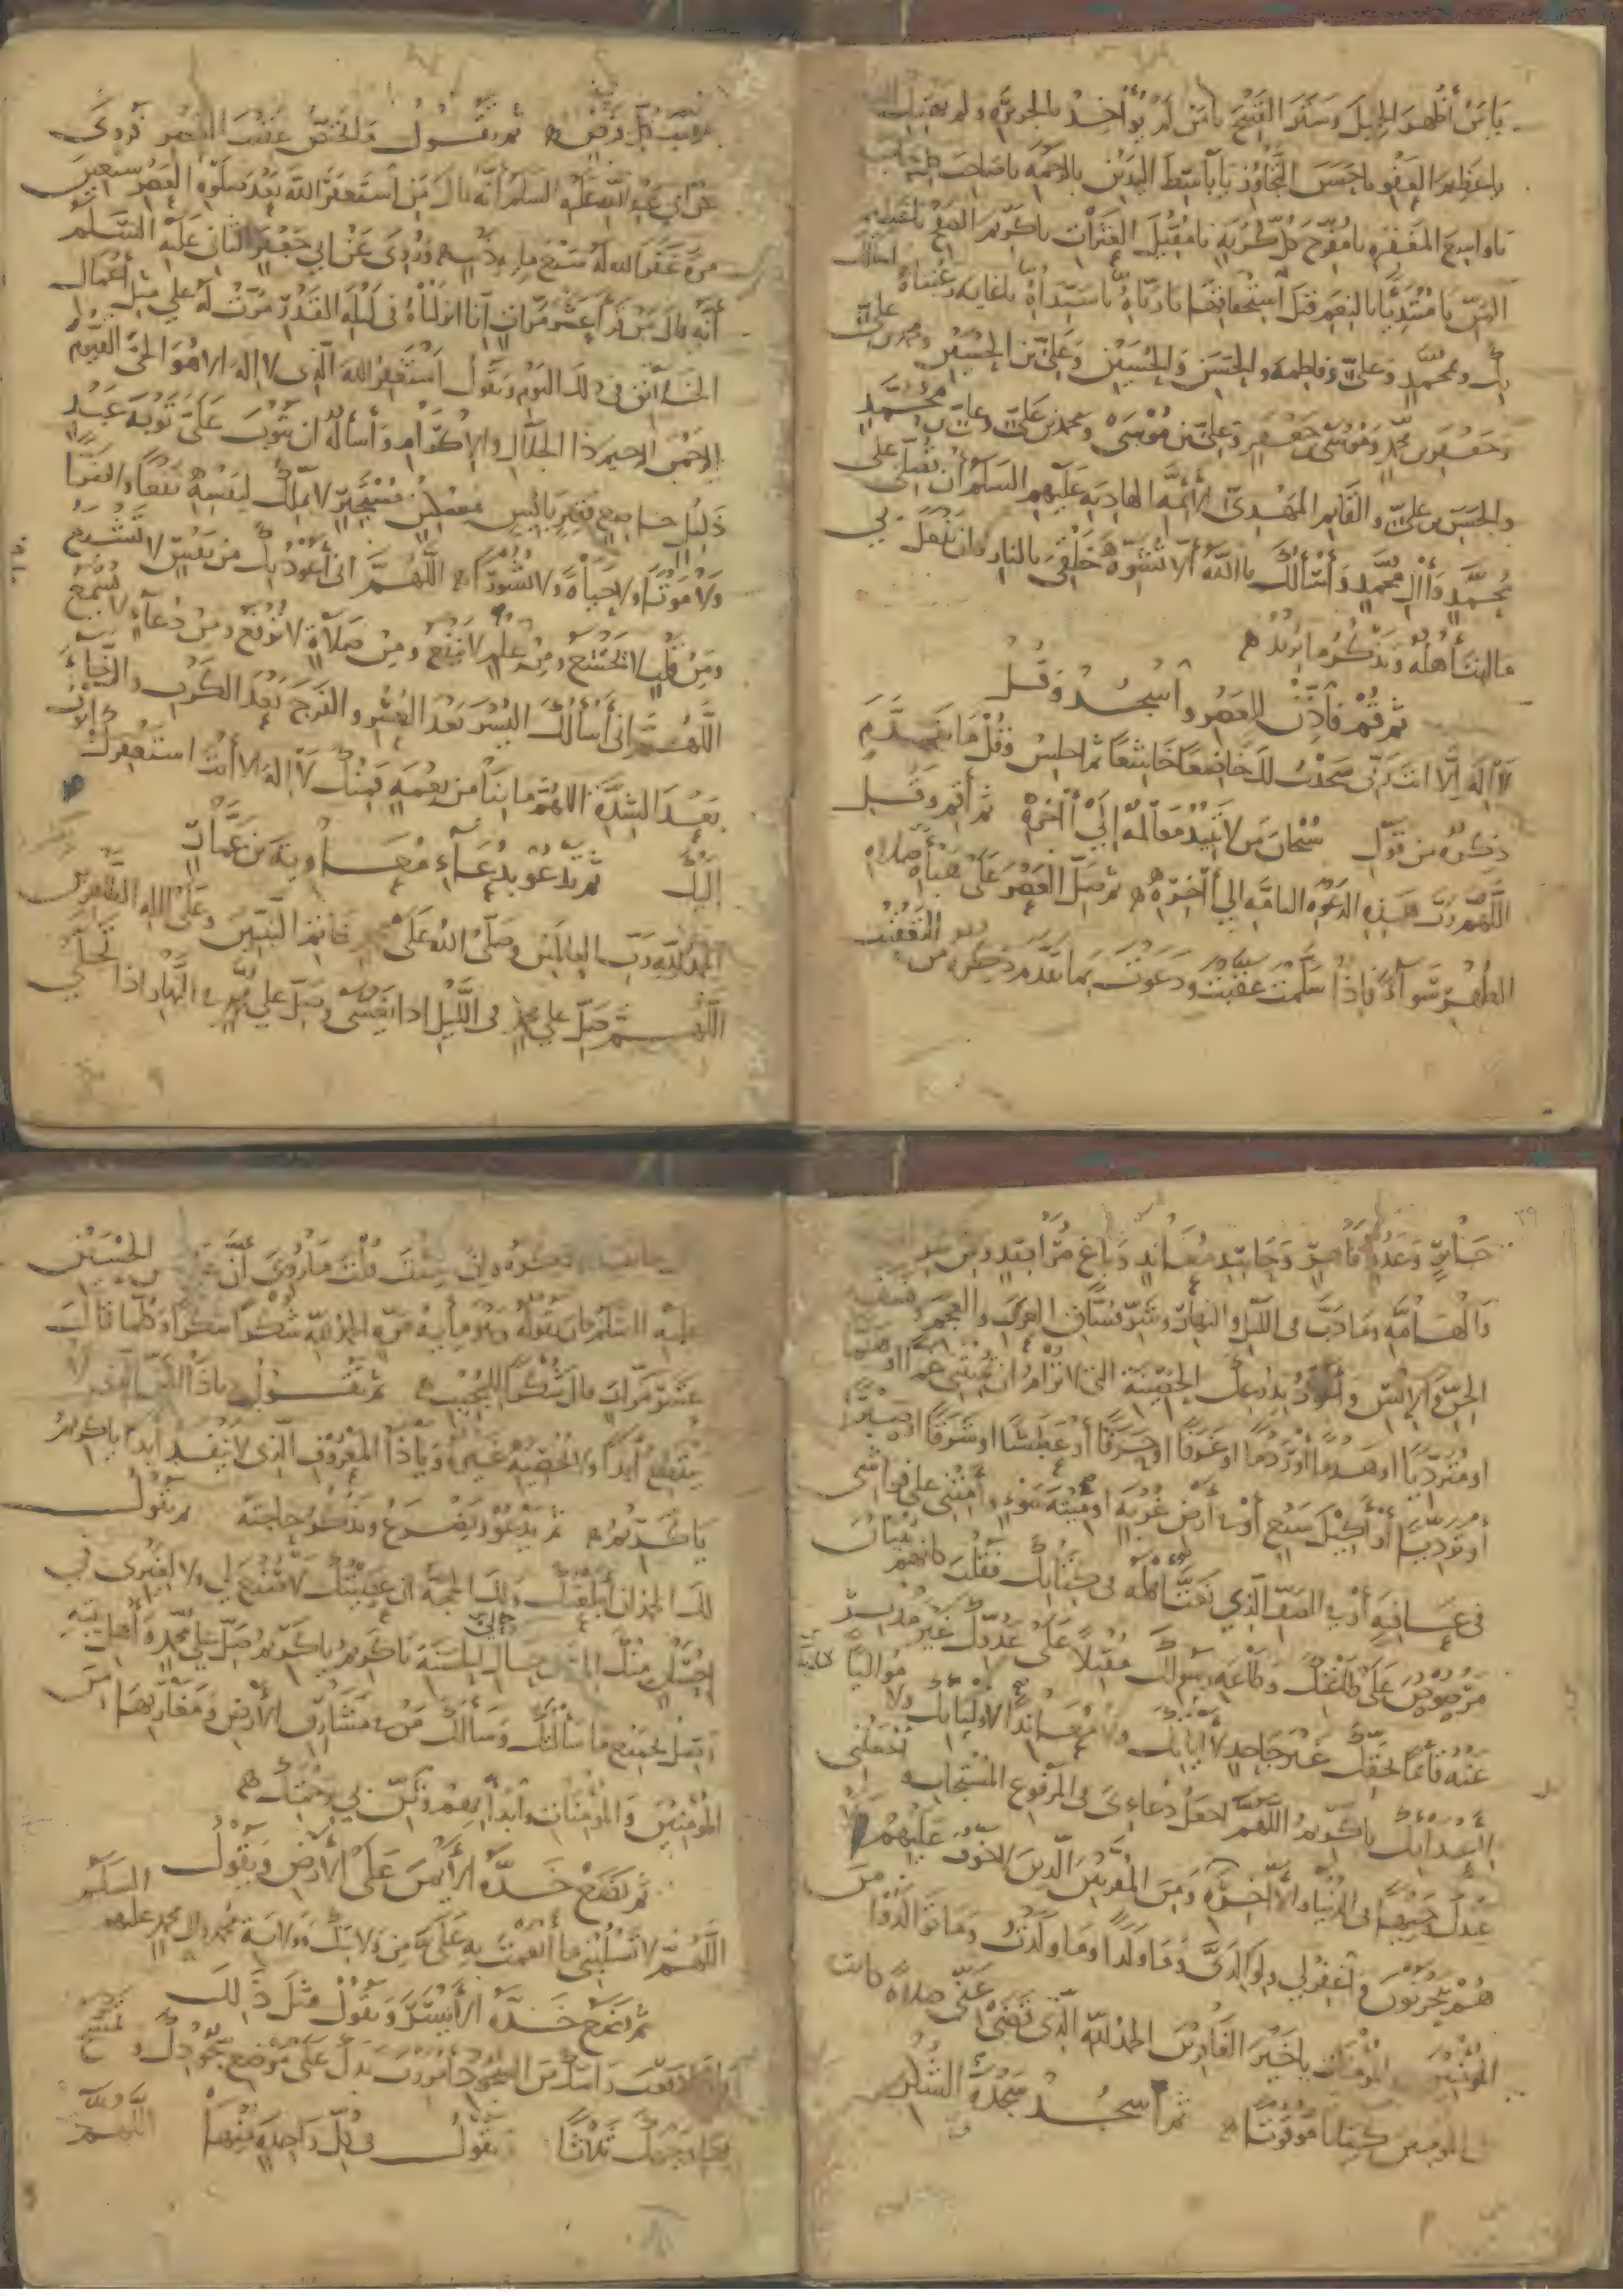 يَا مَنْ أَظْهَرَ الجَمِيلَ وَسَتَرَ القَبِيحَ يَا مَنْ لَمْ يُؤَاخِذْ بِالجَرِيرَةِ وَلَمْ يَهْتِكْ
يا عَظِيمَ العَفْوِ يا حَسَنَ التَّجَاوُزِ يا بَاسِطَ اليَدَيْنِ بِالرَّحْمَةِ يا صَاحِبَ
يا واسِعَ المَغفِرَةِ يا مُفَرِّجَ كُلِّ كُرْبَةٍ يا مُقِيلَ العَثَرَاتِ يا كَرِيمَ الصَّفْحِ يا عَظِيمَ
المَنِّ يا مُبْتَدِئًا بِالنِعَمِ قَبْلَ اسْتِحْقاقِهَا يا رَبَّاهُ يا سَيِّدَاهُ يا غايَةَ رَغْبَتَاهُ اسألك
بك وبمحمدٍ وعليٍّ وفاطمة والحَسَنِ والحُسَيْنِ وَعَلِيِّ بْنِ الحُسَيْنِ ومحمد بن علي
وجعفر بن محمد وموسى بن جعفر وعلي بن مُوسَى ومحمد بن علي وعلي بن محمد
والحسن بن علي والقائم المهدي الأئمة الهادية عليهم السلم أن تصلي على
محمد وآل محمد وأسألك يا الله ألا تشوه خلقي بالنار وان تفعل بي
ما انت أهله وتذكر ما تريد
ثم قم فأذن للعصر واسجد وقل
لا اله إلا انت ربي سجدت لك خاضعا خاشعا ثم اجلس وقل ما تقدم
ذكره من قول سبحان من لا تبيد معالمه إلى آخره ثم أقم وقل
اللهم رب هذه الدعوة التامة الى آخره ثم صل العصر على هيأة صلاة
الظهر سواء فإذا سلمت عقبت ودعوت بما تقدم ذكره من
عقيب كل فرض ثم تقول والمختص عقيب العصر فروى
عن أبي عبد الله عليه السلم أنه قال من استغفر الله بعد صلوة العصر سبعين
مرة غفر الله له سبع مائة ذنب وروى عن أبي جعفر الثاني عليه السلم
أنه قال من قرأ عشر مرات انا انزلناه في ليلة القدر مرت له على مثل أعمال
الخلائق في ذلك اليوم وتقول أستغفر الله الذي لا اله الا هو الحي القيوم
الرحمن الرحيم ذا الجلال والإكرام وأسأله ان يتوب علي توبة عبد
ذليل خاضع فقير بائس مستجير لا يملك لنفسه نفعا ولا ضرا
ولا موتا ولا حياة ولا نشورا اللهم انى أعوذ بك من نفس لا تشبع
ومن قلب لا يخشع ومن علم لا ينفع ومن صلاة لا ترفع ومن دعاء لا يسمع
اللهم انى أسألك اليسر بعد العسر والفرج بعد الكرب والرخاء
بعد الشدة اللهم ما بنا من نعمة فمنك لا اله الا أنت استغفرك وأتوب
إليك ثم تدعو بدعاء معاوية بن عمار
الحمد لله رب العالمين وصلى الله على خاتم النبيين وعلى اله الطاهرين
اللهم صل على محمد في الليل اذا يغشى وصل على محمد في النهار اذا تجلى
٣٩
جبار وعدو قاصد وحاسد معاند وباغ مراصد ومن شر
والهامة وما دب في الليل والنهار وشر فساق العرب والعجم وفسقة
الجن والانس وأعوذ بدرعك الحصينة التي لا ترام ان تميتني غما او هما
او مترديا او هدما او ردما او غرقا او حرقا أو عطشا او شرقا او صبرا
او ترديا أو أكيل سبع أو في أرض غربة او ميتة سوء وأمتني على فراشي
في عافية أو في الصف الذي نعت اهله في كتابك فقلت كانهم بنيان
مرصوص على طاعتك وطاعة رسولك مقبلا على عدوك غير مدبر
عنه قائما بحقك غير جاحد لآلائك ولا معاندا لأوليائك ولا مواليا
لأعدائك يا كريم اللهم اجعل دعاءى في المرفوع المستجاب واجعلني
عندك وجيها في الدنيا والآخرة ومن المقربين الذين لا خوف عليهم ولا
هم يحزنون واغفر لي ولوالدي وما ولدا وما ولدت وما توالدوا من
المؤمنين والمؤمنات يا خير الغافرين الحمد لله الذي قضى عني صلاة كانت
على المومنين كتابا موقوتا ثم اسجد سجدة الشكر
وإن شئت قلت ما روي أن علي بن الحسين
عليه السلم كان يقوله وهو مأية مرة الحمد لله شكرا شكرا وكلما قالت
عشر مرات قال شكرا للمجيب ثم تقول يا ذا المن الذي لا
ينقطع أبدا ولا يحصيه غيره ويا ذا المعروف الذي لا ينفد أبدا يا كريم
يا كريم ثم تدعو وتضرع وتذكر حاجتك ثم تقول
لك الحمد ان أطعتك ولك الحجة ان عصيتك لا صنع لي ولا لغيري في
إحسان منك الي في حال الحسنة يا كريم يا كريم صل على محمد وأهل بيته
وصل بجميع ما سألتك وسألك من في مشارق الأرض ومغاربها من
المؤمنين والمؤمنات وابدأ بهم وثن بي برحمتك
ثم تضع خدك الأيمن على الأرض وتقول
اللهم لا تسلبني ما أنعمت به علي من ولايتك وولاية محمد وال محمد عليهم السلم
ثم تضع خدك الأيسر وتقول مثل ذلك
وإذا رفعت رأسك من السجود أمررت يدك على موضع سجودك وتمسح
بها وجهك ثلاثا تقول في كل واحدة منها اللهم